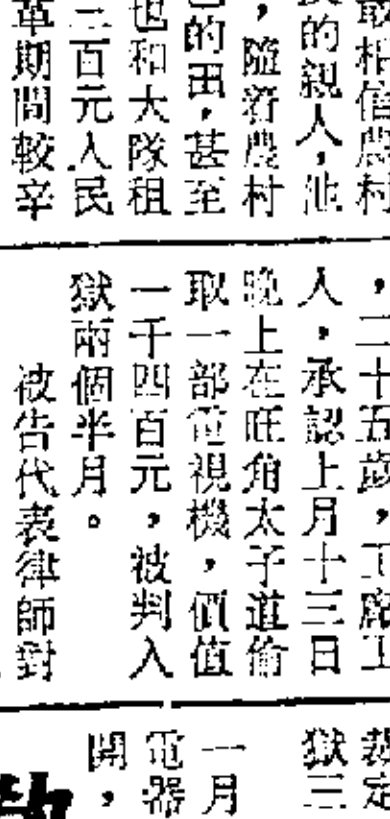 取相信農村
的親人，他
，隨着農村
的田，甚至
也和大隊租
三百元人民
革期間較辛
，二十五歲，工廠工
人，承認上月十三日
晚上在旺角太子道偷
取一部電視機，價值
一千四百元，被判入
獄兩個半月。
被告代表律師對
定
獄三
一月
電器
開，